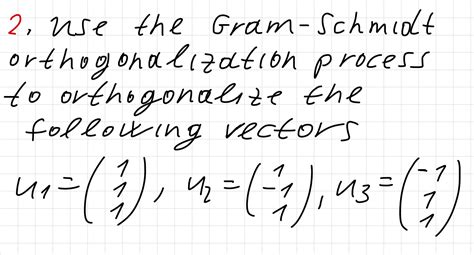 2, use the Gram-Schmidt
orthogonalization process
to orthogonalize the
following vectors
u1 = (1 1 1), u2 = (1 -1 1), u3 = (-1 1 1)